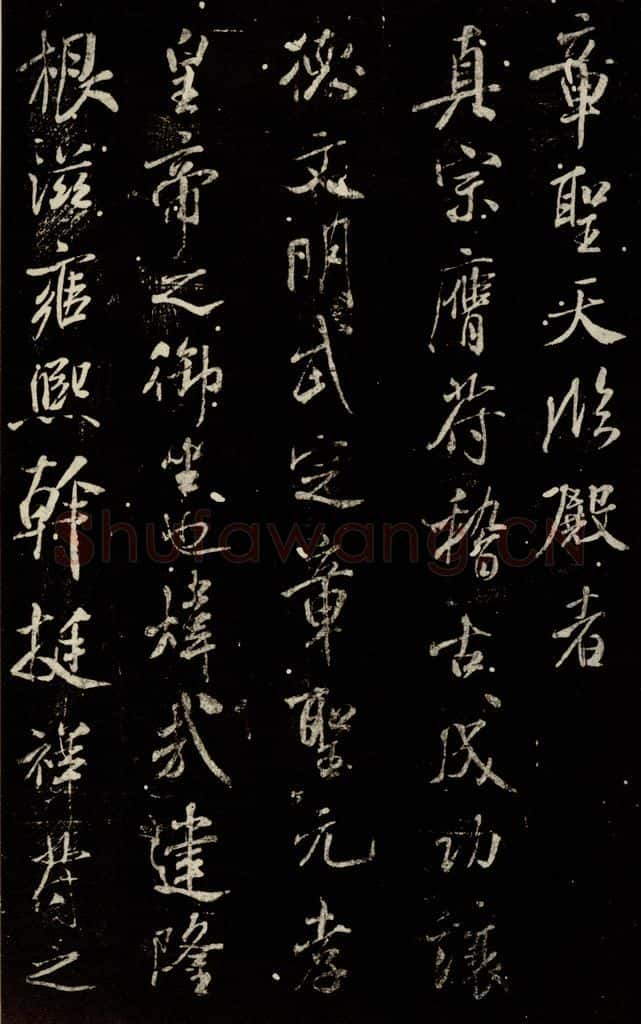 章聖天臨殿者
真宗膺符稽古成功讓
德文明武定章聖元孝
皇帝之御坐也煒哉建隆
根滋雍熙幹挺祥符之
Shufawang.CN